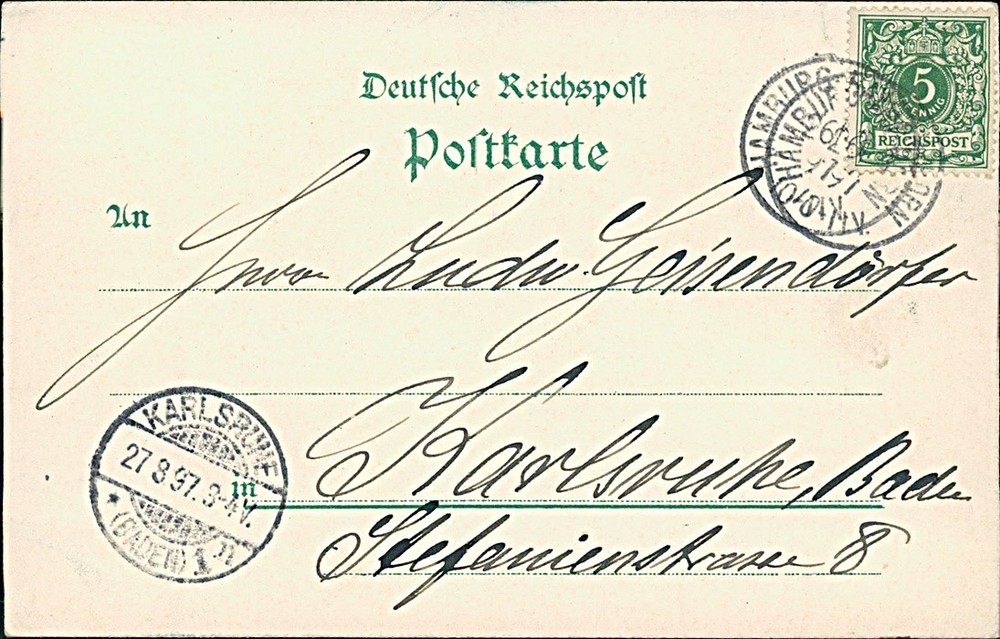 Deutsche Reichspost
Postkarte
5
PFENNIG
REICHSPOST
HAMBURG
HAMBURG
An
Herrn Ludw. Geisendörfer
KARLSRUHE
27 8 97. 3-4V.
(BADEN) 1
in
Karlsruhe, Baden
Stefanienstrasse 8